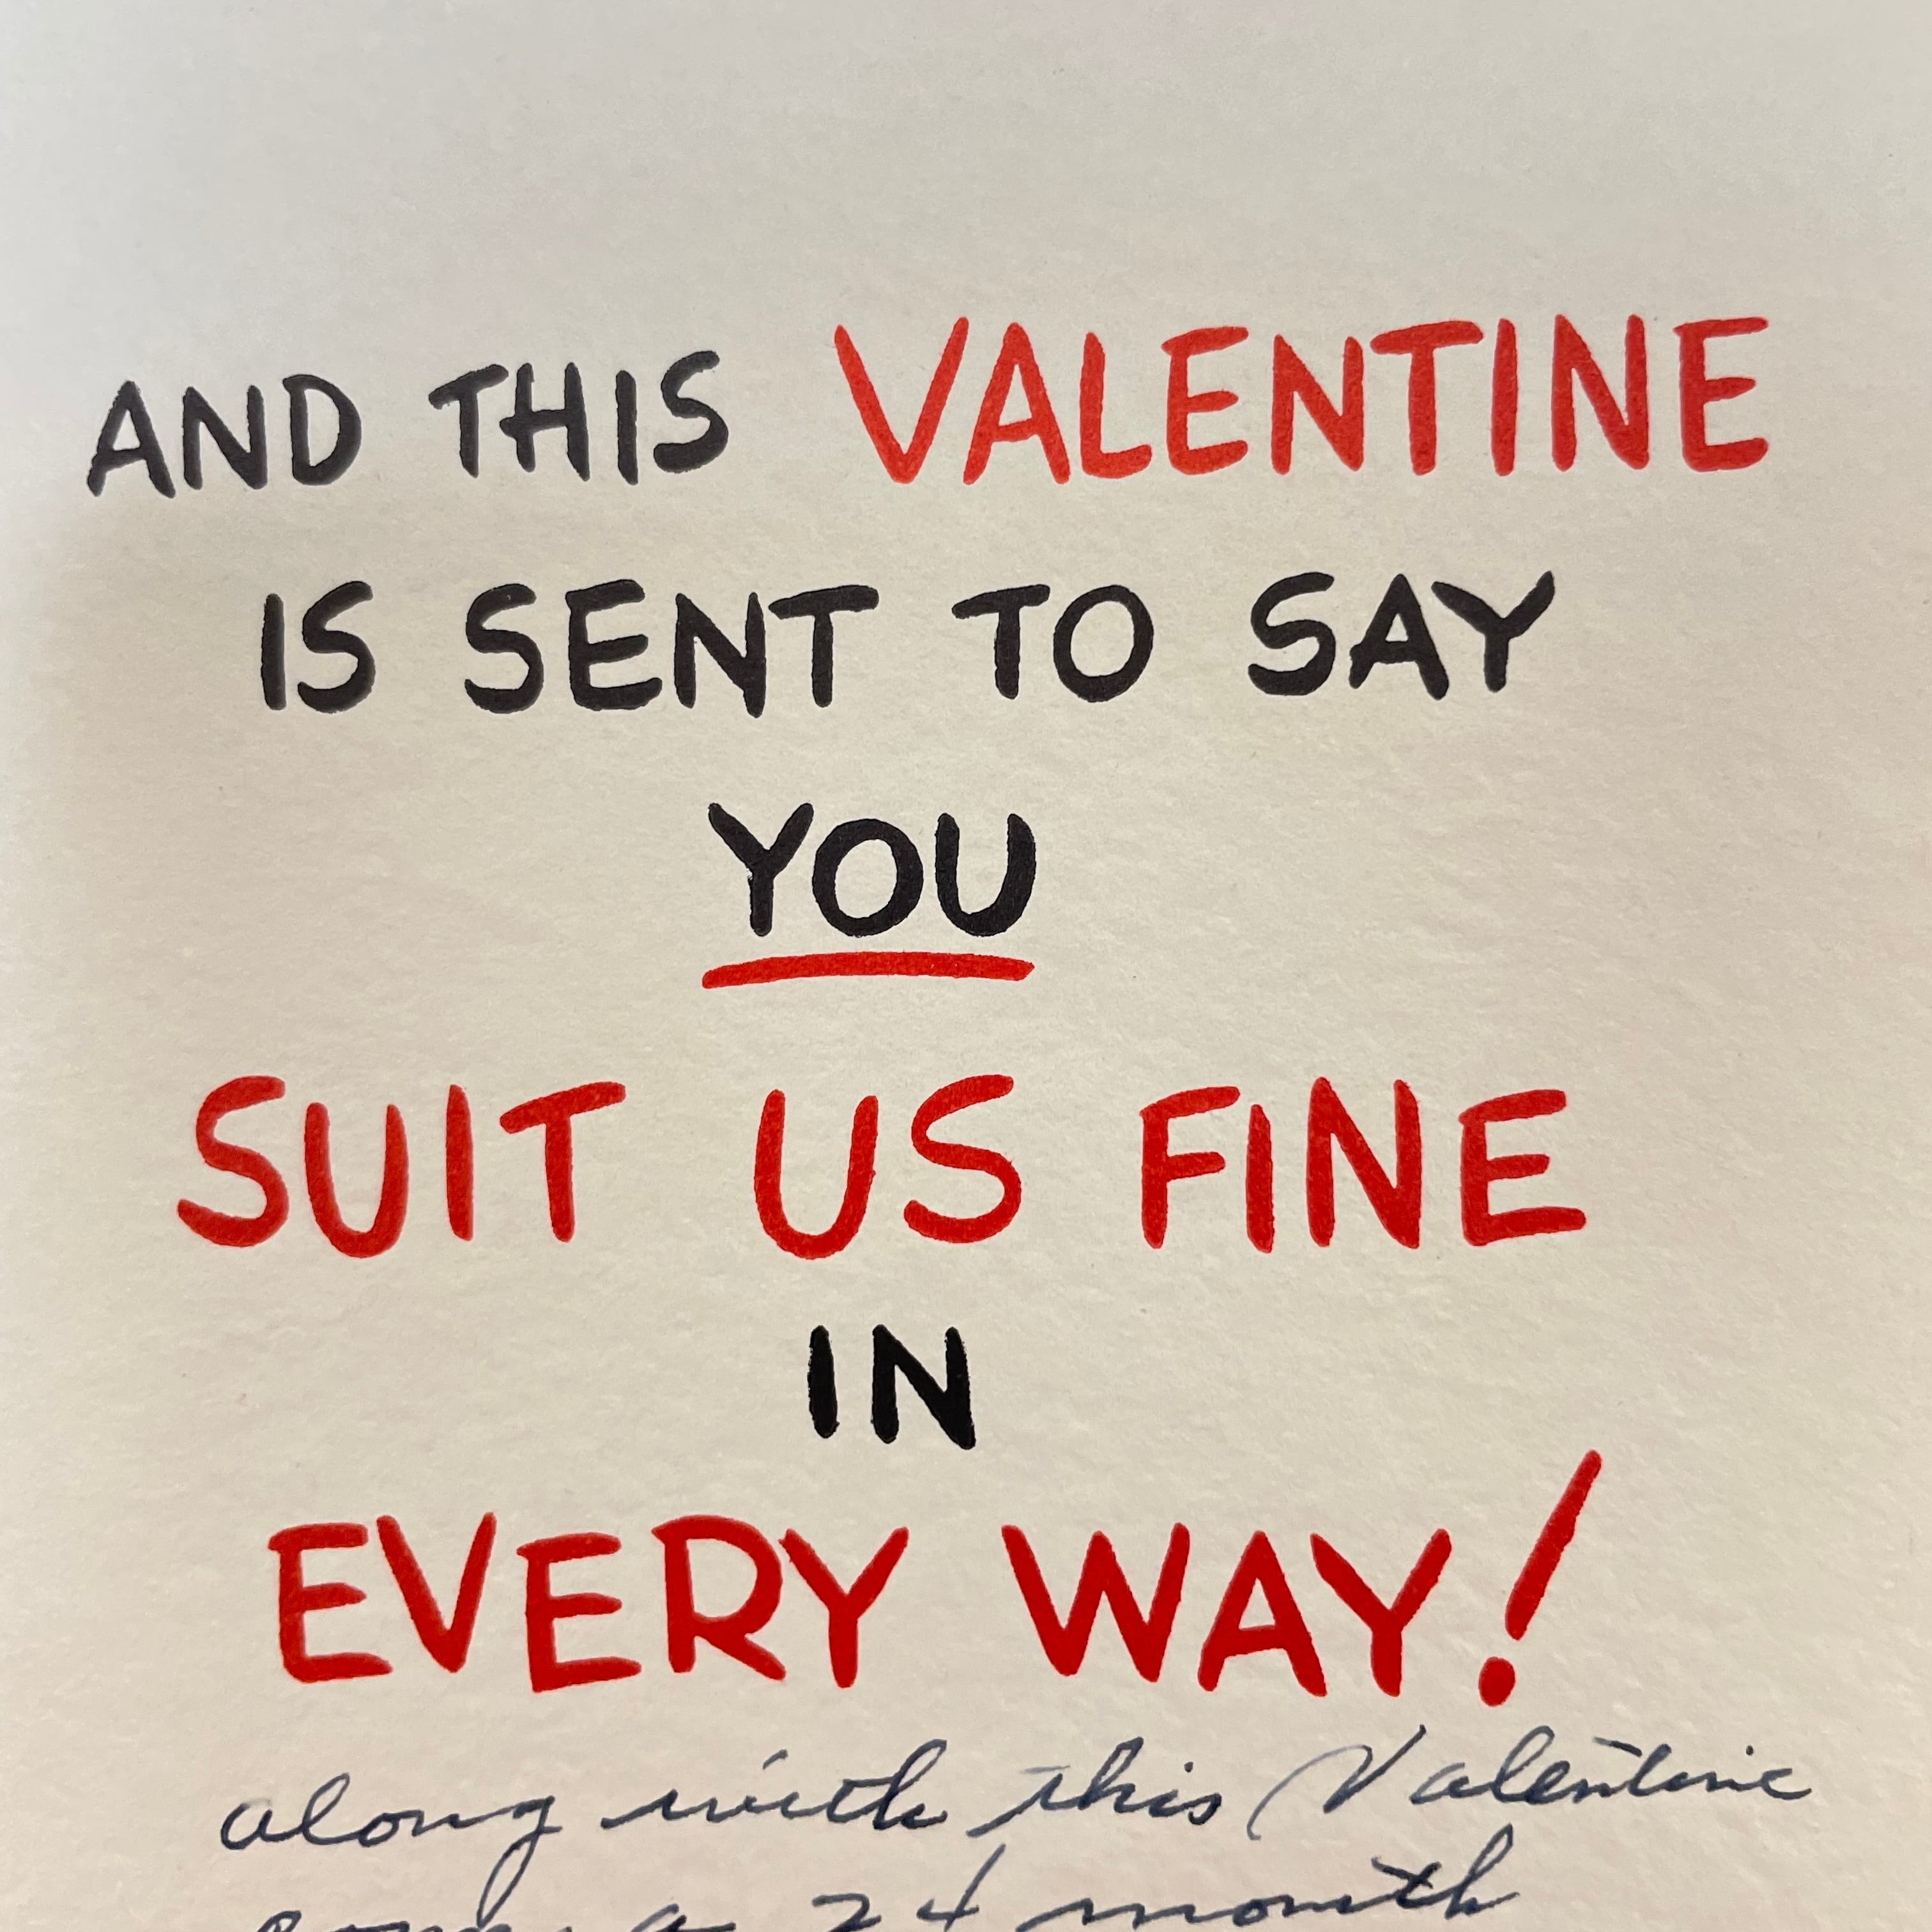 AND THIS VALENTINE
IS SENT TO SAY
YOU
SUIT US FINE
IN
EVERY WAY!
along with this Valentine
a 24 month